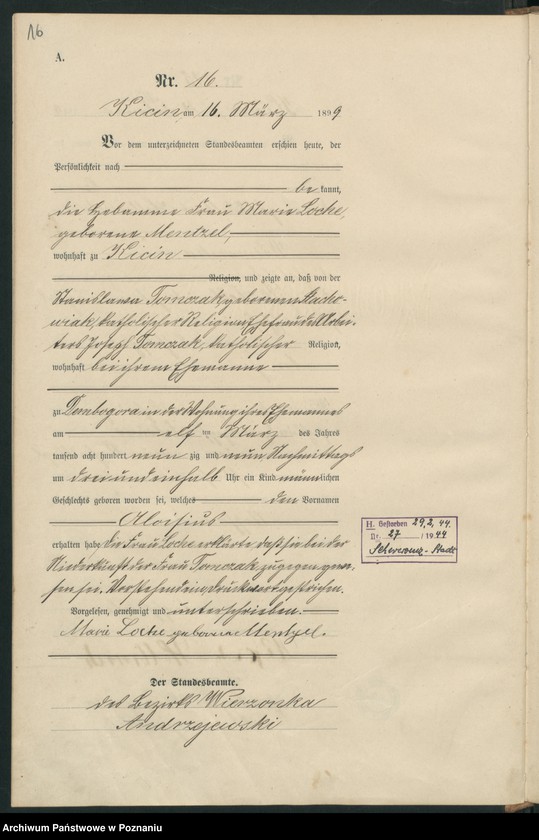 16
A.
Nr. 16.
Kicin, am 16. März 1899
Vor dem unterzeichneten Standesbeamten erschien heute, der
Persönlichkeit nach
bekannt,
die Hebamme Frau Marie Loche,
geborene Mentzel,
wohnhaft zu Kicin
Religion, und zeigte an, daß von der
Stanislawa Tomczak, geborenen Stacho-
wiak, katholischer Religion, Ehefrau des Arbei-
ters Joseph Tomczak, katholischer Religion,
wohnhaft bei ihrem Ehemanne
zu Dembogora in der Wohnung ihres Ehemannes
am elf ten März des Jahres
tausend acht hundert neun zig und neun Nachmittags
um drei und einhalb Uhr ein Kind männlichen
Geschlechts geboren worden sei, welches den Vornamen
Aloisius
erhalten habe. Die Frau Loche erklärte, daß sie bei der
Niederkunft der Frau Tomczak zugegen gewe-
sen sei. Vorstehend ein Druckwort gestrichen.
Vorgelesen, genehmigt und unterschrieben.
Marie Loche geborene Mentzel.
Der Standesbeamte.
des Bezirks Wierzonka
Andrzejewski
H. Gestorben 29.2.44.
Nr. 27 /1944
Schwersenz-Stadt
Archiwum Państwowe w Poznaniu